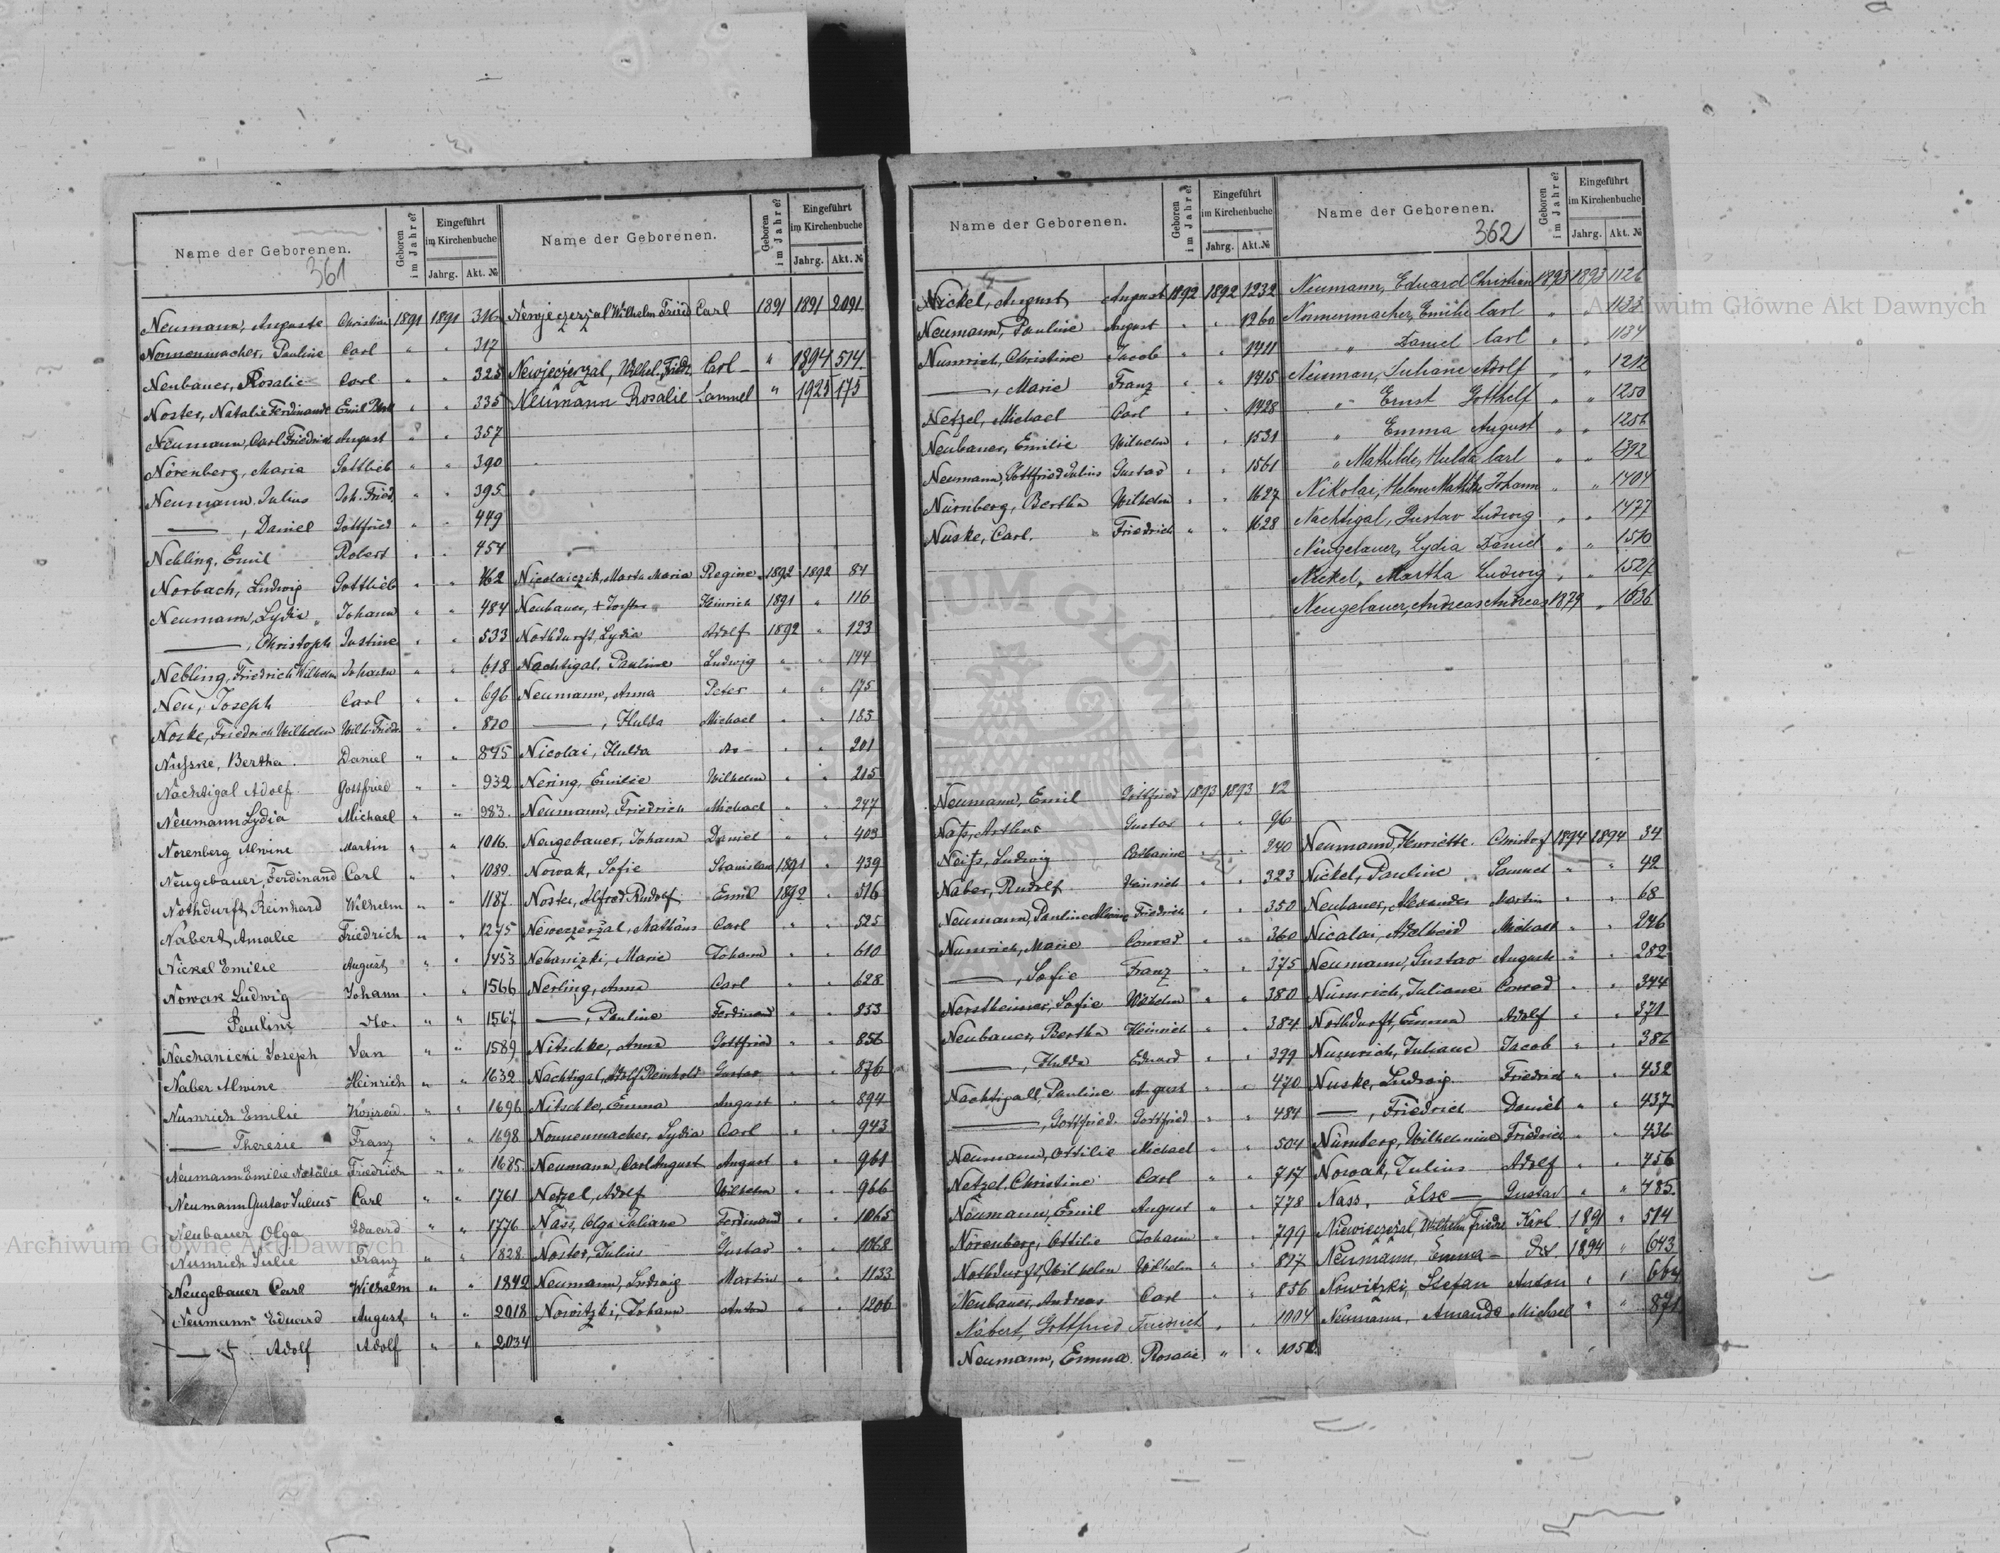 Name der Geborenen.
361
Geboren im Jahre?
Eingeführt im Kirchenbuche
Jahrg. Akt. №
Neumann, Auguste Christian 1891 1891 316
Nonnenmacher, Pauline Carl " " 317
Neubauer, Rosalie Carl " " 325
Noster, Natalie Ferdinande Emil " " 335
Neumann, Carl Friedrich August " " 357
Nörenberg, Maria Gottlieb " " 390
Neumann, Julius Joh. Fried. " " 395
—, Daniel Gottfried " " 449
Nebling, Emil Robert " " 454
Norbach, Ludwig Gottlieb " " 462
Neumann, Lydia Johann " " 484
—, Christoph Justine " " 533
Nebling, Friedrich Wilhelm Johann " " 618
Neu, Joseph Carl " " 696
Noske, Friedrich Wilhelm Wilh. Friedr. " " 820
Nusske, Bertha Daniel " " 845
Nachtigal Adolf Gottfried " " 932
Neumann Lydia Michael " " 983.
Norenberg Alwine Martin " " 1016.
Neugebauer, Ferdinand Carl " " 1089.
Nothdurft, Reinhard Wilhelm " " 1187.
Nabert, Amalie Friedrich " " 1275
Nickel Emilie August " " 1453
Nowak Ludwig Johann " " 1566
— Pauline do. " " 1567
Nachanicki Joseph Jan " " 1589
Naber Alwine Heinrich " " 1632
Numrich Emilie Konrad " " 1696
— Theresie Franz " " 1698
Neumann Emilie Natalie Friedrich " " 1685
Neumann Gustav Julius Carl " " 1761
Neubauer Olga Eduard " " 1776
Numrich Julie Franz " " 1828
Neugebauer Carl Wilhelm " " 1842
Neumann Eduard August " " 2018
— Adolf Adolf " " 2034
Name der Geborenen.
Geboren im Jahre?
Eingeführt im Kirchenbuche
Jahrg. Akt. №
Newjeczerzal Wilhelm Fried Carl 1891 1891 2091
Newjeczerzal, Wilhel. Friedr. Carl " 1894 514.
Neumann Rosalie Samuel " 1925 175
Nicolaiczik, Marta Maria Regine 1892 1892 84
Neubauer, Heinrich 1891 " 116
Nothdurft, Lydia Adolf 1892 " 123
Nachtigal, Pauline Ludwig " " 144
Neumann, Anna Peter " " 175
—, Hulda Michael " " 183
Nicolai, Hulda do " " 201
Nering, Emilie Wilhelm " " 215
Neumann, Friedrich Michael " " 247
Neugebauer, Johann Daniel " " 403
Nowak, Sofie Stanislaus 1891 " 439
Noster, Alfred Rudolf Emil 1892 " 516
Neweczerzal, Mathäus Carl " " 525
Nebanizki, Marie Johann " " 610
Nerling, Anna Carl " " 628
—, Pauline Ferdinand " " 853
Nitschke, Anna Gottfried " " 856
Nachtigal, Adolf Reinhold Gustav " " 876
Nitschke, Emma August " " 894
Nonnenmacher, Lydia Carl " " 943
Neumann, Carl August August " " 961
Netzel, Adolf Wilhelm " " 966
Nass, Olga Juliane Ferdinand " " 1065
Noster, Julius Gustav " " 1068
Neumann, Ludwig Martin " " 1133
Nowitzki, Johann Anton " " 1206
Name der Geborenen.
Geboren im Jahre?
Eingeführt im Kirchenbuche
Jahrg. Akt. №
Nickel, August August 1892 1892 1232
Neumann, Pauline August " " 1260
Numrich, Christine Jacob " " 1411
—, Marie Franz " " 1415
Netzel, Michael Carl " " 1428
Neubauer, Emilie Wilhelm " " 1531
Neumann, Gottfried Julius Gustav " " 1561
Nürnberg, Bertha Wilhelm " " 1627
Nuske, Carl. Friedrich " " 1628
Neumann, Emil Gottfried 1893 1893 42
Nass, Arthur Gustav " " 96
Neiss, Ludwig Catharine " " 240
Naber, Rudolf Heinrich " " 323
Neumann, Pauline Friedrich " " 350
Numrich, Marie Conrad " " 360
—, Sofie Franz " " 375
Nerstheimer, Sofie Wilhelm " " 380
Neubauer, Bertha Heinrich " " 384
—, Hulda Eduard " " 399
Nachtigall, Pauline August " " 470
—, Gottfried Gottfried " " 484
Neumann, Ottilie Michael " " 504
Netzel, Christine Carl " " 717
Neumann, Emil August " " 778
Nörenberg, Ottilie Johann " " 799
Nothdurft, Wilhelm Wilhelm " " 817
Neubauer, Andreas Carl " " 856
Nabert, Gottfried Friedrich " " 1004
Neumann, Emma Rosalie " " 1051
Name der Geborenen.
362
Geboren im Jahre?
Eingeführt im Kirchenbuche
Jahrg. Akt. №
Neumann, Eduard Christian 1893 1893 1126
Nonnenmacher, Emilie Carl " " 1133
" Daniel Carl " " 1134
Neuman, Juliane Adolf " " 1212
" Ernst Gotthelf " " 1250
" Emma August " " 1256
" Mathilde, Hulda Carl " " 1392
Nikolai, Helene Mathilde Johann " " 1404
Nachtigal, Gustav Ludwig " " 1477
Neugebauer, Lydia Daniel " " 1510
Nickel, Martha Ludwig " " 1527
Neugebauer, Andreas Andreas 1879 " 1636
Neumann, Henriette Christof 1894 1894 34
Nickel, Pauline Samuel " " 42
Neubauer, Alexander Martin " " 68
Nicalai, Adelheid Michael " " 246
Neumann, Gustav August " " 282
Numrich, Juliane Conrad " " 344
Nothdurft, Emma Adolf " " 371
Numrich, Juliane Jacob " " 386
Nuske, Ludwig Friedrich " " 432
—, Friedrich Daniel " " 437
Nürnberg, Wilhelmine Friedrich " " 436
Nowak, Julius Adolf " " 456
Nass, Else — Gustav " " 485.
Niewieczezal, Wilhelm Friedr Karl 1891 " 514
Neumann, Emma — 1894 " 643
Nowitzki, Stefan Anton " " 664
Neumann, Amanda Michael " " 871
Archiwum Główne Akt Dawnych
Archiwum Główne Akt Dawnych
Archiwum Główne Akt Dawnych